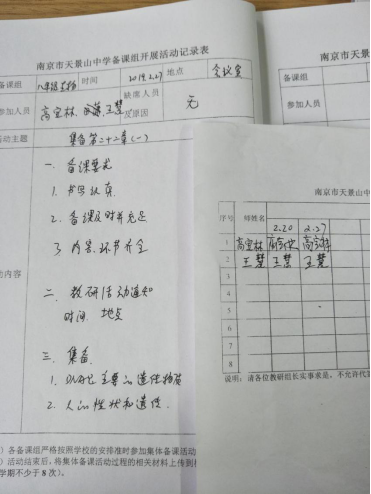 南京市天景山中学备课组开展活动记录表
备课组 八年级生物 时间 2019.2.27 地点 会议室
参加人员 高宝林 王慧 缺席人员及原因 无
活动主题 集备第二十二章(一)
一. 备课要求
1. 书写认真
2. 备课及时并充足
3. 内容.环节齐全
动内容
二. 教研活动通知
时间. 地点
三. 集备.
1. DNA是主要的遗传物质
2. 人的性状和遗传.
)各备课组严格按照学校的安排准时参加集体备课活动
)活动结束后,将集体备课活动过程的相关材料上传到
学期不少于8次)。
南京市天景山中
序号 师姓名 2.20 2.27
1 高宝林 高宝林 高宝林
2 王慧 王慧 王慧
3
4
5
6
7
8
说明:请各位教研组长实事求是,不允许代
南京市
备课组
参加人员